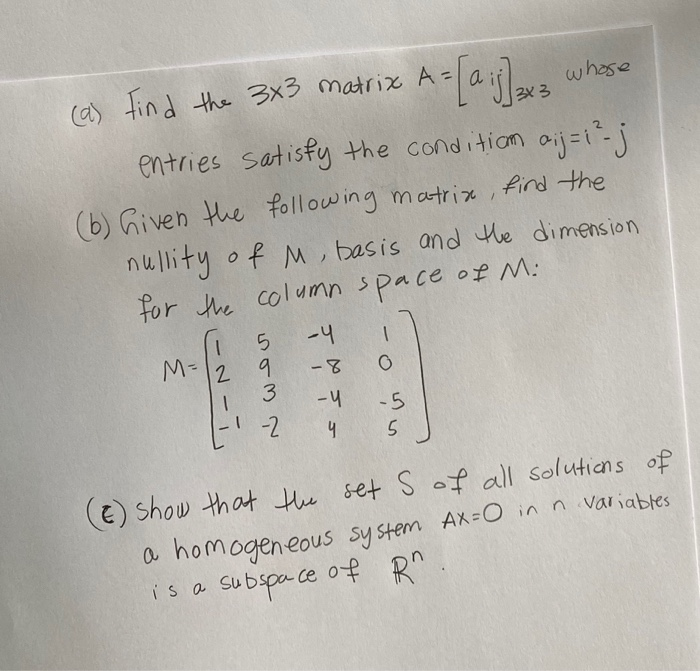 (a) find the 3x3 matrix A = [aij]3x3 whose
entries satisfy the condition aij=i²-j
(b) Given the following matrix, find the
nullity of M, basis and the dimension
for the column space of M:
M= [1 5 -4 1
2 9 -8 0
1 3 -4 -5
-1 -2 4 5]
(c) show that the set S of all solutions of
a homogeneous system AX=0 in n variables
is a subspace of Rⁿ.